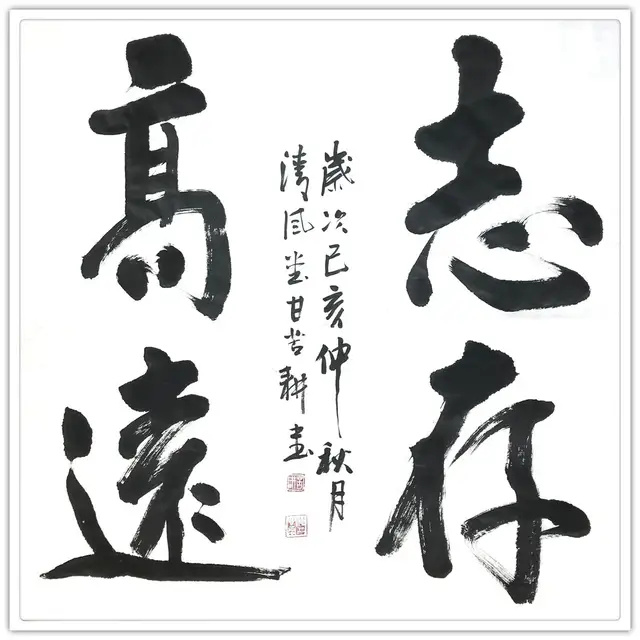 志存
高遠
歲次己亥仲秋月
清風堂甘苦耕書